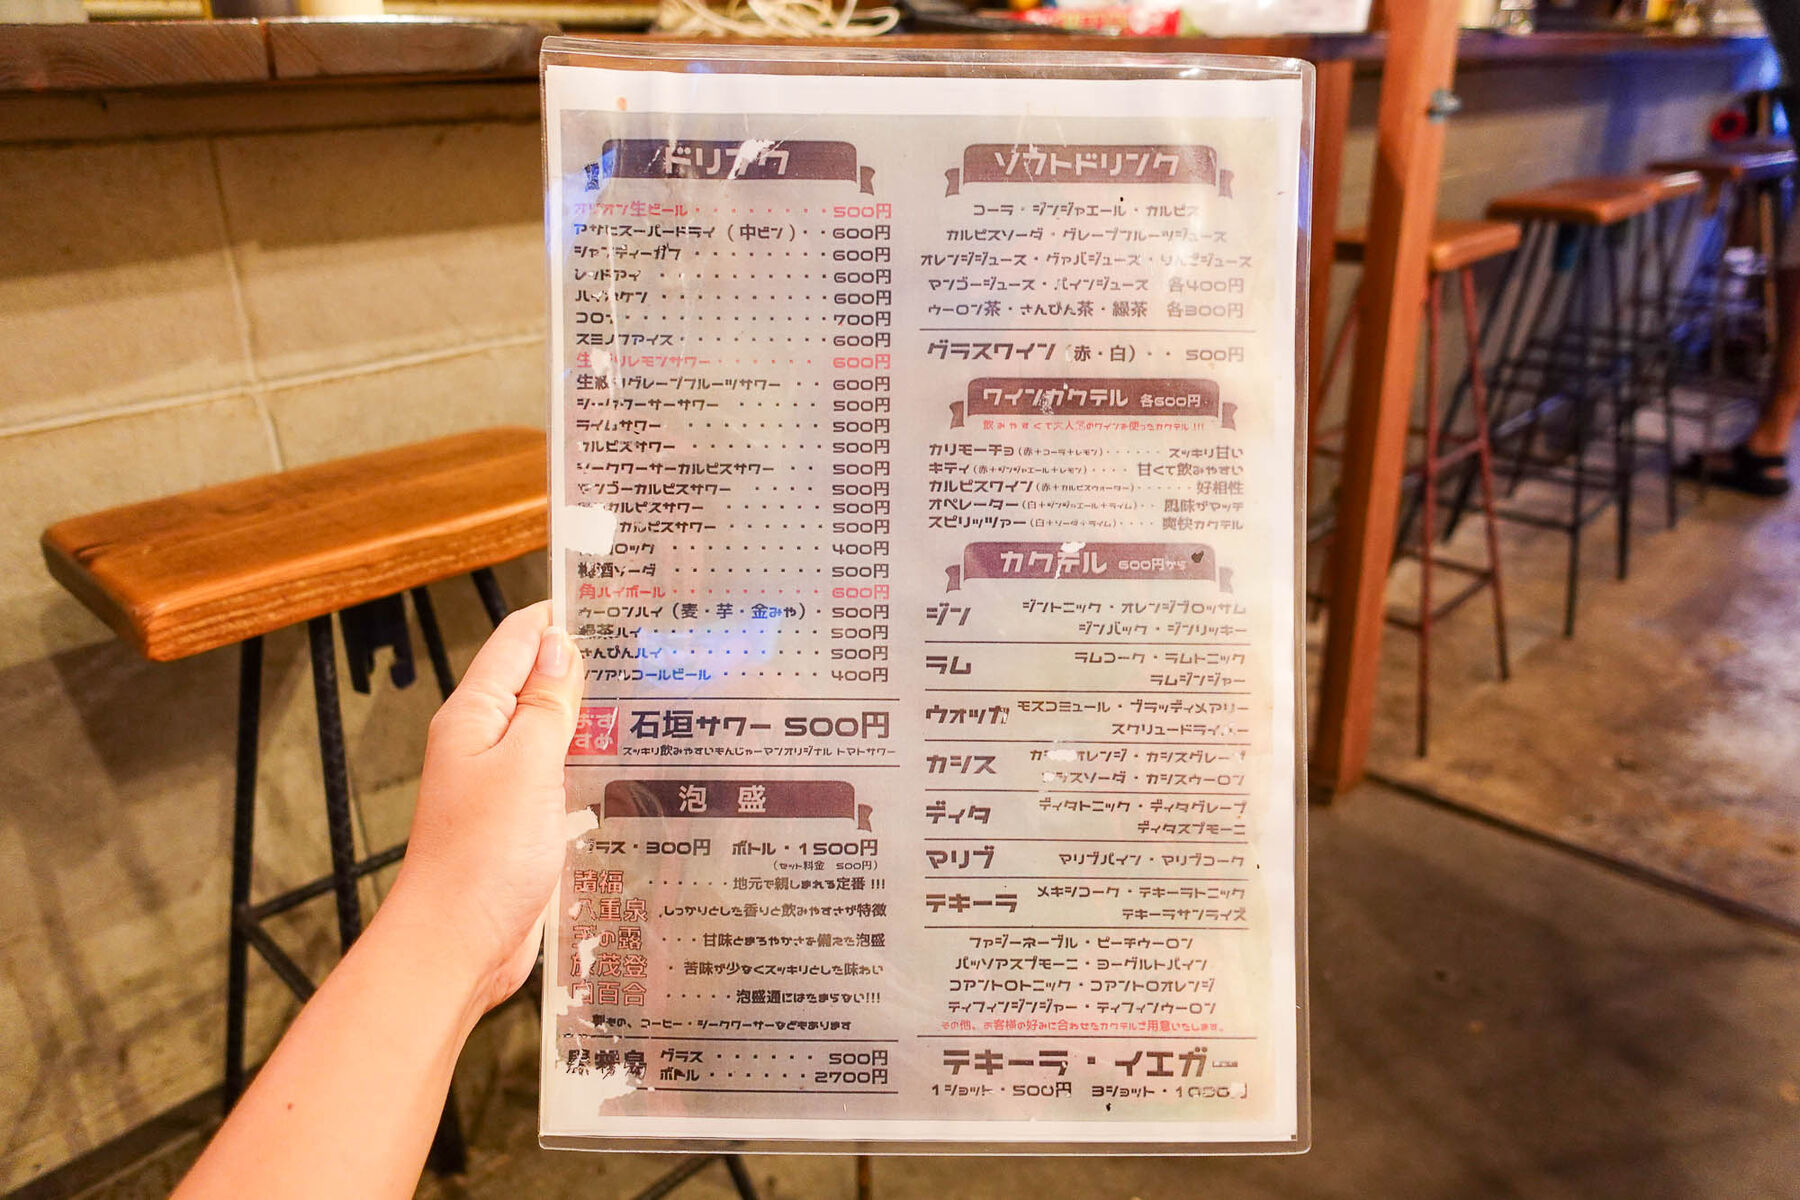 ドリンク
オリオン生ビール・・・・・・・・500円
アサヒスーパードライ（中ビン）・・600円
シャンディーガフ・・・・・・・・600円
レッドアイ・・・・・・・・・・600円
ハイネケン・・・・・・・・・・600円
コロナ・・・・・・・・・・・700円
スミノフアイス・・・・・・・・600円
生搾りレモンサワー・・・・・・600円
生搾りグレープフルーツサワー・・600円
シークワーサーサワー・・・・・500円
ライムサワー・・・・・・・・500円
カルピスサワー・・・・・・・500円
シークワーサーカルピスサワー・・500円
マンゴーカルピスサワー・・・・500円
カルピスサワー・・・・・500円
カルピスサワー・・・・・500円
ロック・・・・・・・・・400円
梅酒ソーダ・・・・・・・・・500円
角ハイボール・・・・・・・・600円
ウーロンハイ（麦・芋・金みや）・500円
緑茶ハイ・・・・・・・・・・500円
さんぴんハイ・・・・・・・・500円
ノンアルコールビール・・・・・・400円
おすすめ
石垣サワー 500円
スッキリ飲みやすいもんじゃーマンオリジナル トマトサワー
泡盛
グラス・300円 ボトル・1500円
（セット料金 500円）
請福・・・・・・地元で親しまれる定番!!!
八重泉 しっかりとした香りと飲みやすさが特徴
玉の露・・・甘味とまろやかさを備えた泡盛
於茂登・苦味が少なくスッキリとした味わい
白百合・・・・・泡盛通にはたまらない!!!
割もの、コーヒー・シークワーサーなどもあります
黒 グラス・・・・・・500円
ボトル・・・・・・2700円
ソフトドリンク
コーラ・ジンジャエール・カルピス
カルピスソーダ・グレープフルーツジュース
オレンジジュース・グァバジュース・りんごジュース
マンゴージュース・パインジュース 各400円
ウーロン茶・さんぴん茶・緑茶 各300円
グラスワイン（赤・白）・・500円
ワインカクテル 各600円
飲みやすくて大人気のワインを使ったカクテル!!!
カリモーチョ（赤＋コーラ＋レモン）・・・・・・スッキリ甘い
キティ（赤＋ジンジャエール＋レモン）・・・・甘くて飲みやすい
カルピスワイン（赤＋カルピスウォーター）・・・・・・好相性
オペレーター（白＋ジンジャエール＋ライム）・・風味がマッチ
スピリッツァー（白＋ソーダ＋ライム）・・・・爽快カクテル
カクテル 600円から
ジン ジントニック・オレンジブロッサム
ジンバック・ジンリッキー
ラム ラムコーク・ラムトニック
ラムジンジャー
ウォッカ モスコミュール・ブラッディメアリー
スクリュードライバー
カシス カシスオレンジ・カシスグレープ
カシスソーダ・カシスウーロン
ディタ ディタトニック・ディタグレープ
ディタスプモーニ
マリブ マリブパイン・マリブコーク
テキーラ メキシコーク・テキーラトニック
テキーラサンライズ
ファジーネーブル・ピーチウーロン
パッソアスプモーニ・ヨーグルトパイン
コアントロトニック・コアントロオレンジ
ティフィンジンジャー・ティフィンウーロン
その他、お客様の好みに合わせたカクテルご用意いたします。
テキーラ・イエガー
1ショット・500円 3ショット・